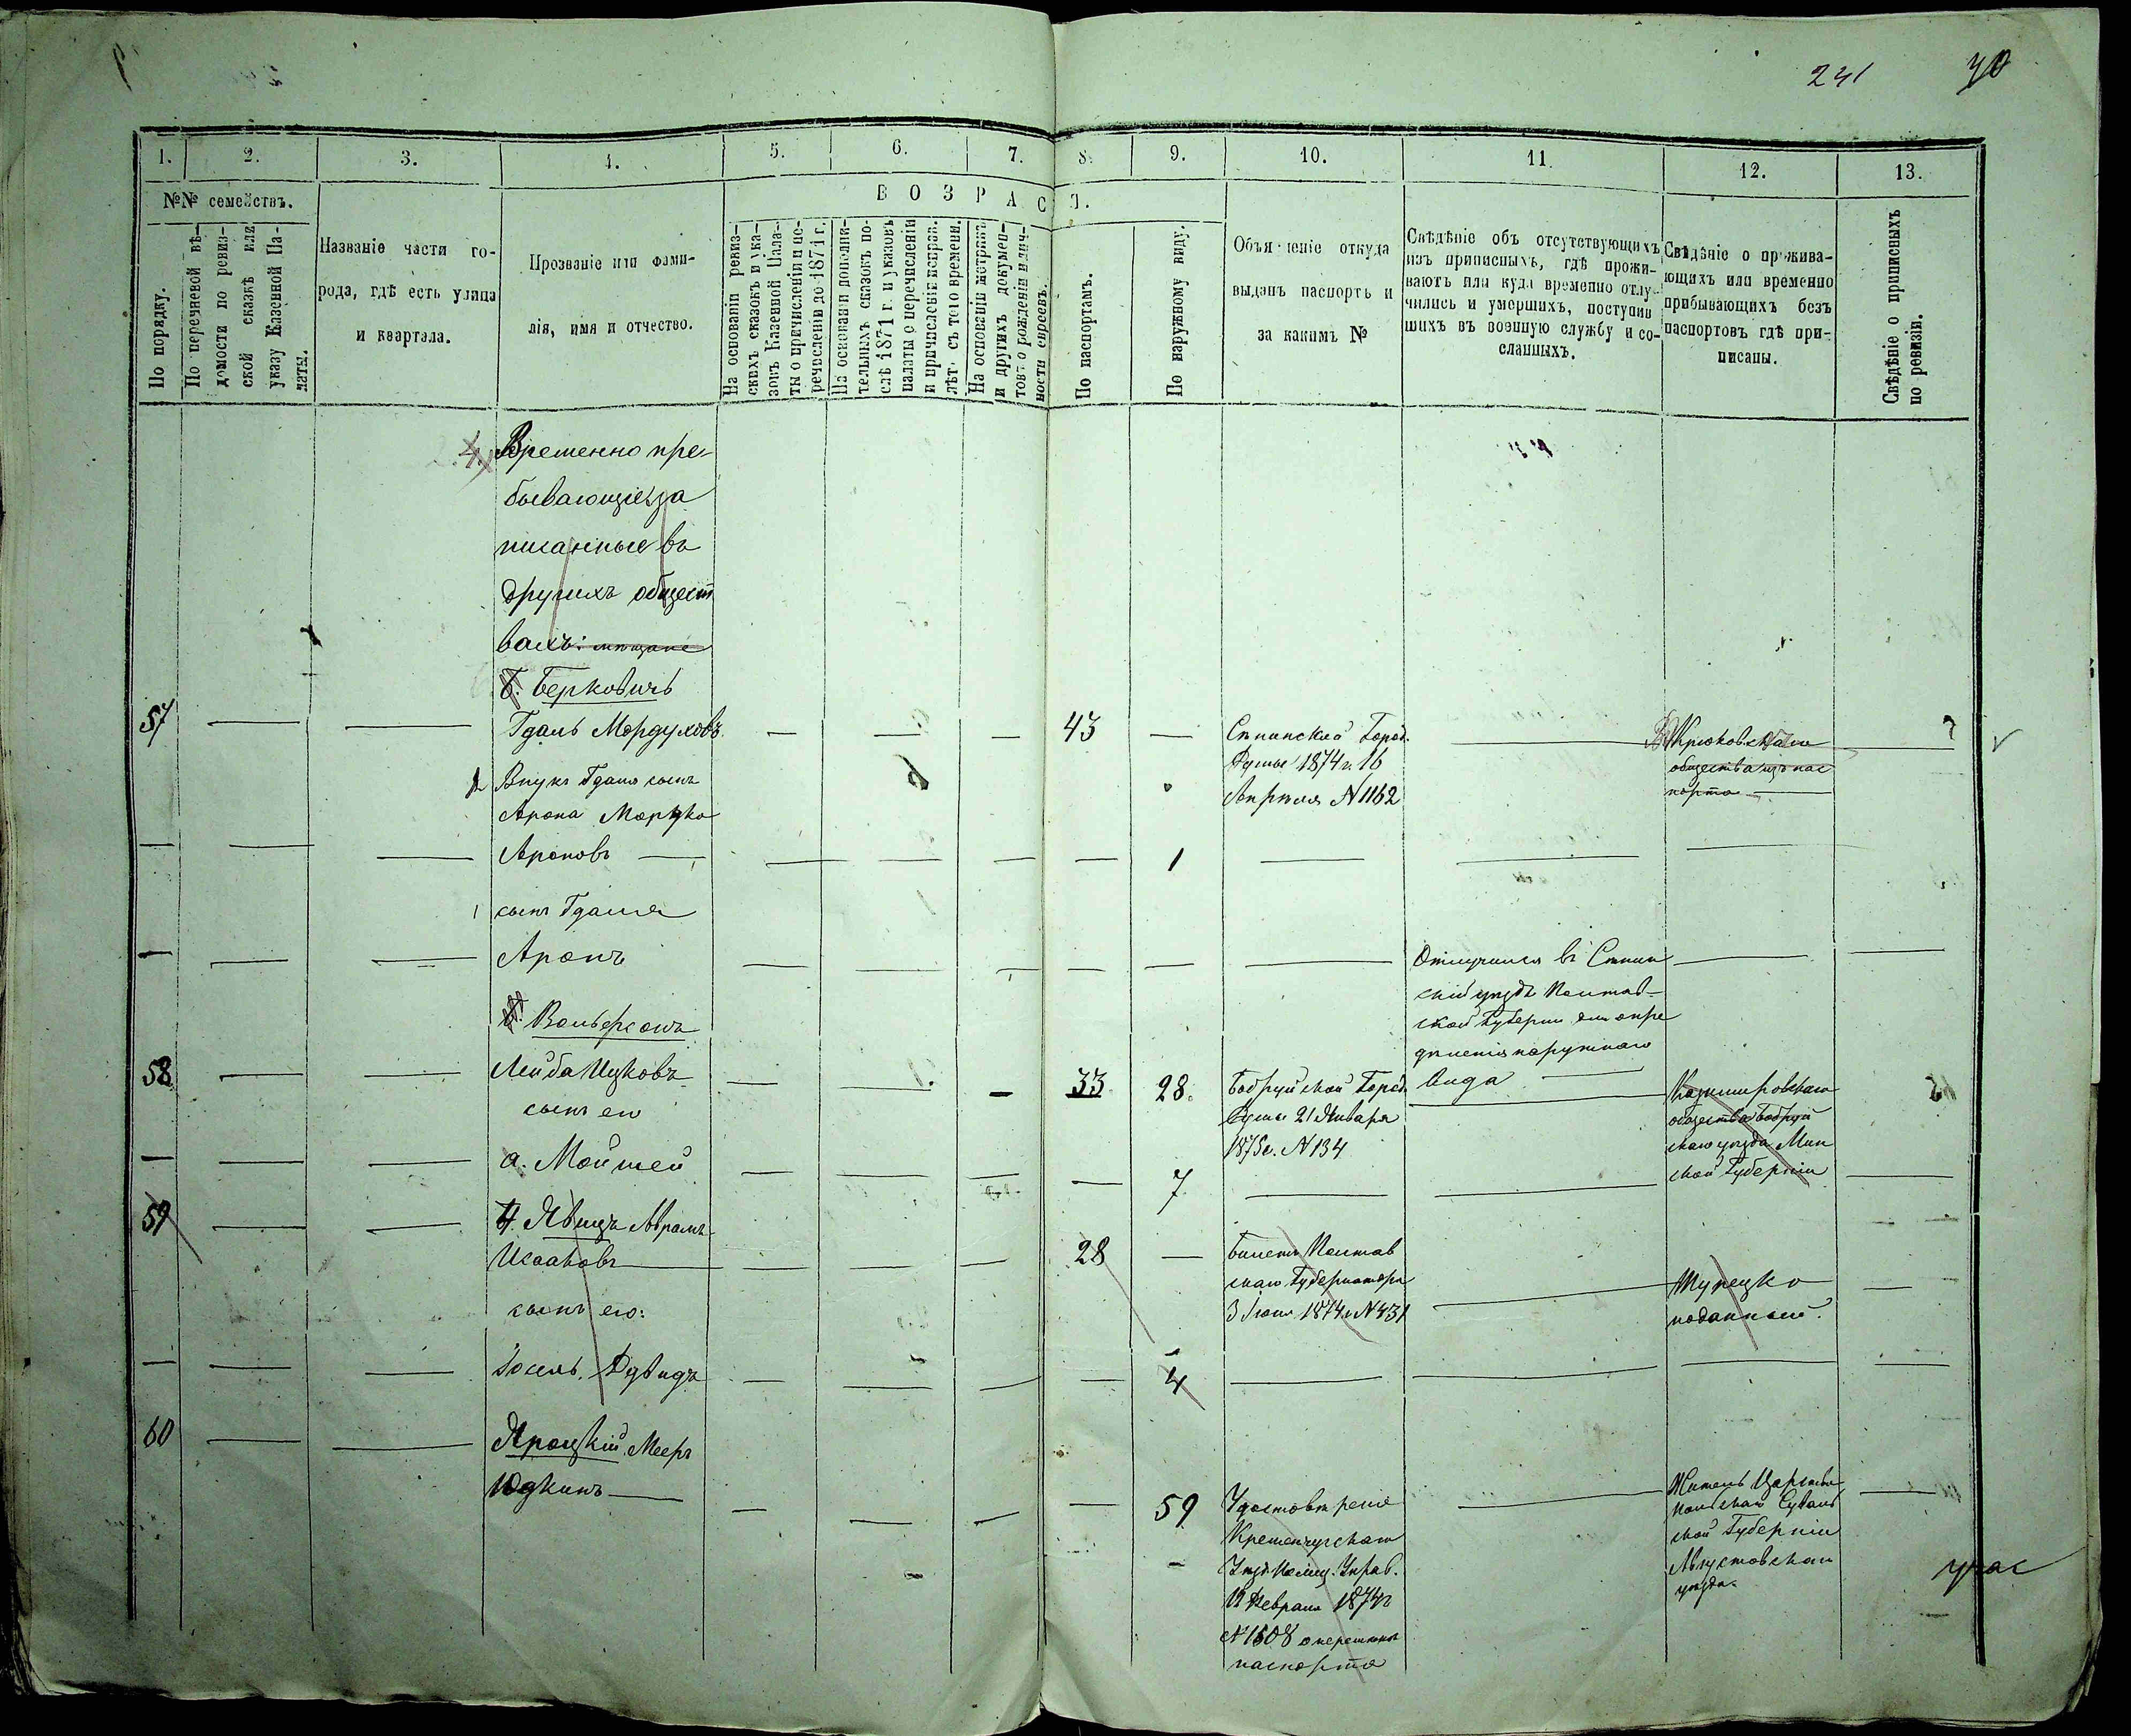 241 70
1. 2. 3. 4. 5. 6. 7. 8. 9. 10. 11. 12. 13.
№№ семействъ.
По порядку.
По перечневой вѣ-
домости по ревиз-
ской сказкѣ или
указу Казенной Па-
латы.
Названіе части го-
рода, гдѣ есть улица
и квартала.
Прозваніе или фами-
лія, имя и отчество.
ВОЗРАСТ.
На основаніи ревиз-
скихъ сказокъ и ука-
зовъ Казенной Пала-
ты о причисленіи и пе-
речисленіи до 1871 г.
На основаніи дополни-
тельныхъ сказокъ по-
слѣ 1871 г. и указовъ
палаты о перечисленіи
и причисленіе исправ.
лѣт. съ того времени.
На основаніи метрикъ
и другихъ докумен-
товъ о рожденіи и лич-
ности евреевъ.
По паспортамъ.
По наружному виду.
Объя неніе откуда
выданъ паспортъ и
за какимъ №
Свѣдѣніе объ отсутствующихъ
изъ приписныхъ, гдѣ прожи-
ваютъ или куда временно отлу-
чились и умершихъ, поступив
шихъ въ военную службу и со-
сланныхъ.
Свѣдѣніе о прожива-
ющихъ или временно
прибывающихъ безъ
паспортовъ гдѣ при-
писаны.
Свѣдѣніе о приписныхъ
по ревизіи.
4. Временно пре-
бывающіе за
писанные въ
другихъ общест
вахъ: мѣщане
Берковичъ
57 Гдаль Мордуховъ 43
Внукъ Гдаля сынъ
Арона Мордко
Ароновъ 1
сынъ Гдаля
Аронъ
Городс.
Думы 1874 г. 16
Апрѣля № 1162
Крюковскаго
общества изъ пас
порта
Отлучился въ
скій уѣздъ Полтав-
ской Губерніи для опре
дѣленія наружнаго
вида
Вольфсонъ
58 Лейба Ицковъ 33 28
сынъ его
а. Мойшей 7
Бобруйской Городс.
Думы 21 Января
1875 г. № 134
Казимировскаго
общества Бобруй
скаго уѣзда Мин
ской Губерніи
59 Явицъ Абрамъ
Исааковъ 28
сынъ его:
Іосель. Дувидъ 4
Билетъ Полтав
скаго Губернатора
3 Іюня 1874 г. № 431
Турецко
поданный.
60 Яроцкій Мееръ
Юдкинъ 59
Удостовѣреніе
Кременчугскаго
Уѣзд. Полиц. Управ.
12 Февраля 1874 г.
№ 1508
паспорта
Житель Царства
Польскаго Сувалк
ской Губерніи
Августовскаго
уѣзда.